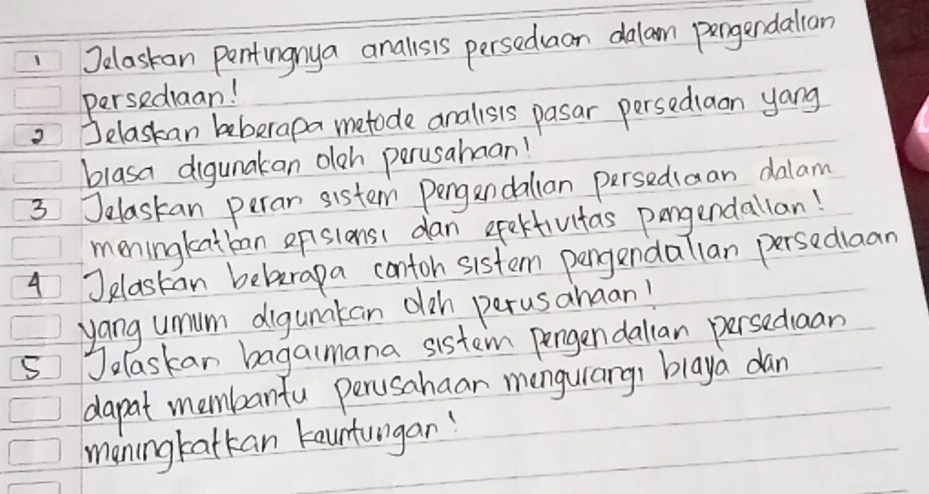 1 Jelaskan pentingnya analisis persediaan dalam pengendalian
persediaan!
2 Jelaskan beberapa metode analisis pasar persediaan yang
biasa digunakan oleh perusahaan!
3 Jelaskan peran sistem pengendalian persediaan dalam
meningkatkan efisiensi dan efektivitas pengendalian!
4 Jelaskan beberapa contoh sistem pengendalian persediaan
yang umum digunakan oleh perusahaan!
5 Jelaskan bagaimana sistem pengendalian persediaan
dapat membantu perusahaan mengurangi biaya dan
meningkatkan keuntungan!